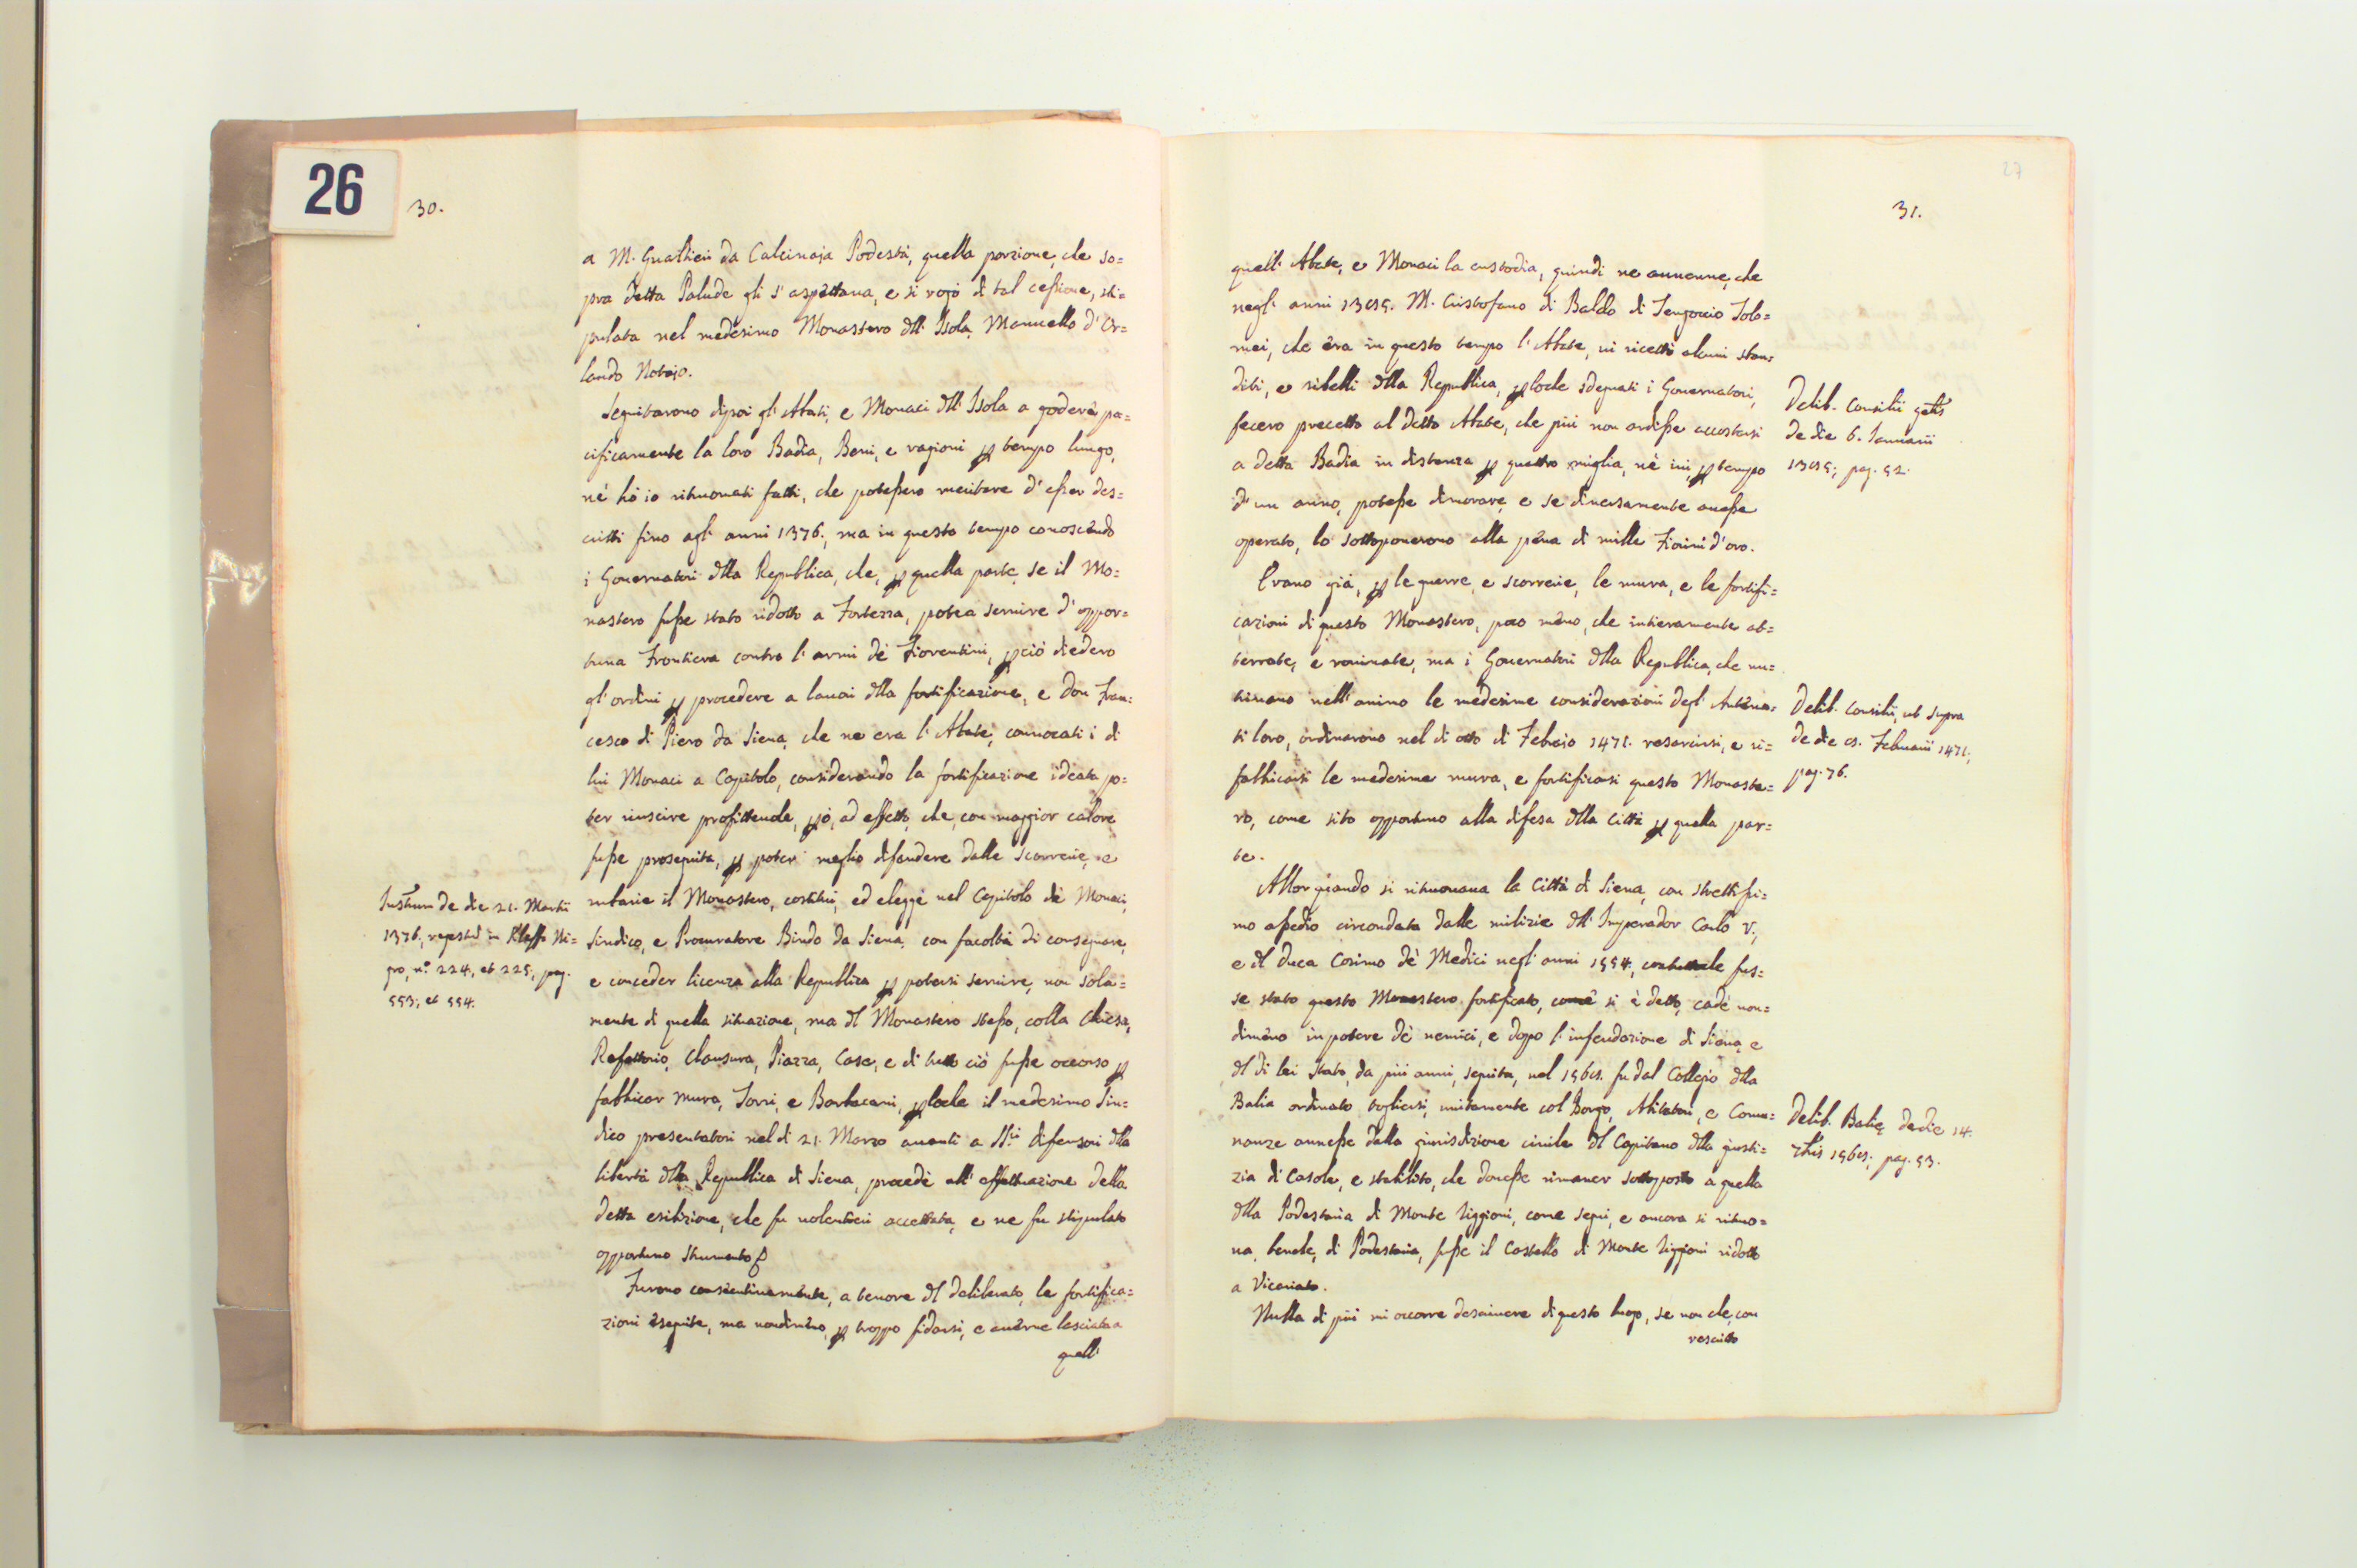 26
30.
a M. Gualtieri da Calcinaja Podestà, quella porzione, che so=
pra detta Palude gli s'aspettaua, e si rogò di tal ceßione, sti=
pulata nel medesimo Monastero dll' Isola, Mannello d'Or=
lando Notajo.
Seguitarono dipoi gl'Abati, e Monaci dll' Isola a godere pa=
cificamente la loro Badia, Beni, e ragioni ꝑ tempo lungo,
nè hò io ritruouati fatti, che poteßero meritare d'eßer des=
critti fino agl' anni 1376., ma in questo tempo conoscendo
i Gouernatori dlla Republica, che, ꝑ quella parte, se il Mo=
nastero fuße stato ridotto a Fortezza, potea seruire d'oppor=
tuna Frontiera contro l'armi dè Fiorentini, ꝑciò diedero
gl'ordini ꝑ procedere a lauori dlla fortificazione, e Don Fran=
cesco di Piero da Siena, che ne era l'Abate, conuocati i di
lui Monaci a Capitolo, considerando la fortificazione ideata po=
ter riuscire profitteuole, ꝑò, ad effetto, che, con maggior calore
fuße proseguita, ꝑ poter meglio difendere dalle scorrerie, e
ruberie il Monastero, costituì, ed elegge nel Capitolo dè Monaci,
Sindico, e Procuratore Bindo da Siena, con facoltà di consegnare,
e conceder licenza alla Republica ꝑ potersi seruire, non sola=
mente di quella situazione, ma dl Monastero steßo, colla Chiesa,
Refettorio, Clausura, Piazza, Case, e di tutto ciò fuße occorso ꝑ
fabbricar Mura, Torri, e Barbacani, ꝑloche il medesimo Sin=
dico presentatosi nel dì 21. Marzo auanti a SS.ri Difensori dlla
libertà dlla Republica di Siena, procedè all' effettuazione della
detta esibizione, che fu uolentieri accettata, e ne fu stipulato
opportuno strumento
Furono consecutiuamente, a tenore dl deliberato, le fortifica=
zioni eseguite, ma nondimeno, ꝑ troppo fidarsi, e auerne lasciata a
quell'
Instrum de die 21. Martii
1376., regestrd in Kleffo Ni=
gro, n.o 224, et 225, pag.
553; et 554.
27
31.
quell' Abate, e Monaci la custodia, quindi ne auuenne, che
negl' anni 1395. M. Cristofano di Baldo di Tengoccio Tolo=
mei, che era in questo tempo l'Abate, ui ricettò alcuni sban=
diti, e ribelli dlla Republica, ꝑloche sdegnati i Gouernatori,
fecero precetto al detto Abate, che più non ardiße accostarsi
a detta Badia in distanza ꝑ quattro miglia, nè iui, ꝑ tempo
d'un anno, poteße dimorare, e se diuersamente aueße
operato, lo sottoponerono alla pena di mille Fiorini d'oro.
Erano già, ꝑ le guerre, e scorrerie, le mura, e le fortifi=
cazioni di questo Monastero, poco meno, che intieramente at=
terrate, e rouinate, ma i Gouernatori dlla Republica, che nu=
triuano nell' animo le medesime considerazioni degl' Antena=
ti loro, ordinarono nel dì otto di Febrajo 1471. resarcirsi, e ri=
fabbricarsi le medesime mura, e fortificarsi questo Monaste=
ro, come sito opportuno alla difesa dlla Città ꝑ quella par=
te.
Allor quando si ritruouaua la Città di Siena, con strettißi=
mo aßedio circondata dalle milizie dll' Imperador Carlo V.,
e dl Duca Cosimo dè Medici negl' anni 1554., contuttoche fus=
se stato questo Monastero fortificato, come si è detto, cadè non=
dimeno in potere dè nemici, e dopo l'infeudazione di Siena, e
dl di lei Stato, da più anni, seguita, nel 1568. fu dal Collegio dlla
Balia ordinato togliersi, unitamente col Borgo, Abitatori, e Comu=
nanze anneße dalla giurisdizione ciuile dl Capitano dlla giusti=
zia di Casole, e stabilito, che doueße rimaner sottoposto a quella
dlla Podestaria di Monte Riggioni, come seguì, e ancora si ritruo=
ua, benche, di Podestaria, fuße il Castello di Monte Riggioni ridotto
a Vicariato.
Nulla di più mi occorre descriuere di questo luogo, se non che, con
rescritto
Delib. Consilii gelis
de die 6. Januarii
1395; pag. 52.
Delib. Consilii, ut supra
de die 8. Februarii 1471,
pag. 76.
Delib. Balię de die 14.
1568; pag. 53.